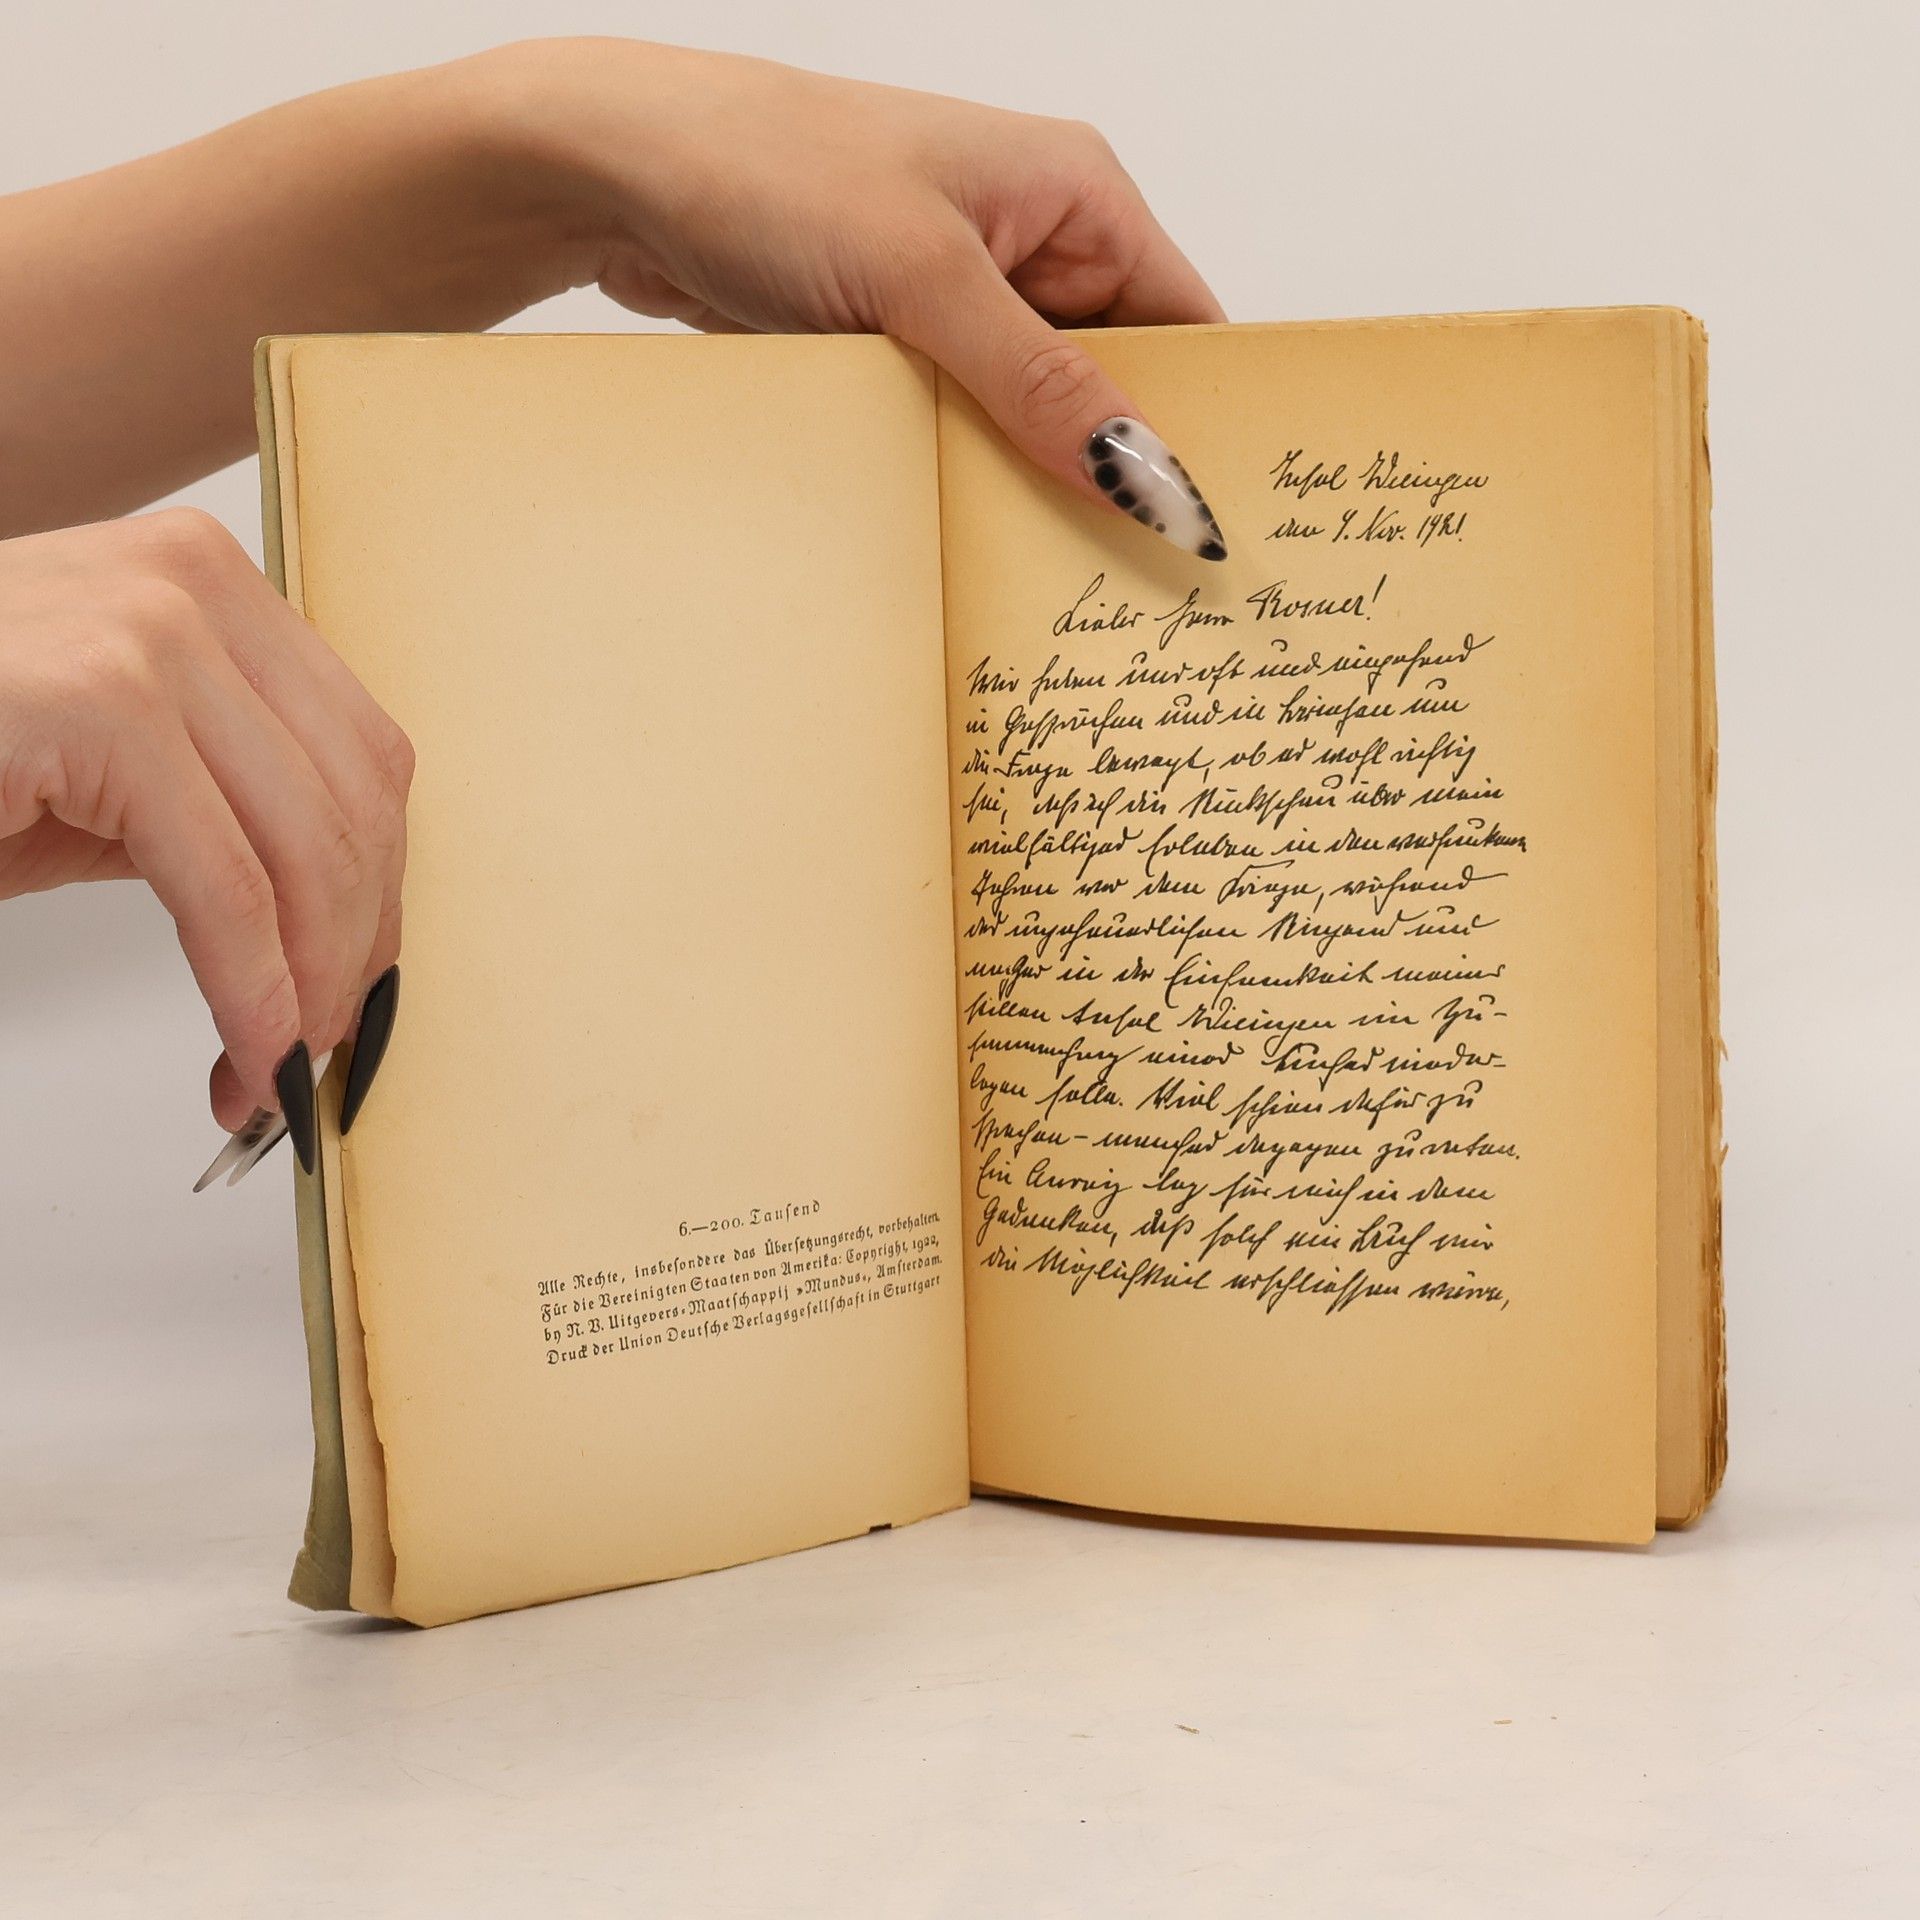 6.—200. Tausend
Alle Rechte, insbesondere das Übersetzungsrecht, vorbehalten.
Für die Vereinigten Staaten von Amerika: Copyright, 1922,
by N. V. Uitgevers-Maatschappij »Mundus«, Amsterdam.
Druck der Union Deutsche Verlagsgesellschaft in Stuttgart
Insel Wieringen
den 9. Nov. 1921.
Lieber Herr Rosner!
Wir haben uns oft und eingehend
in Gesprächen und in Briefen um
die Frage bewegt, ob es wohl richtig
sei, daß ich die Rückschau über mein
vielfältiges Erleben in den versunkenen
Jahren vor dem Kriege, während
des ungeheuerlichen Ringens und
nachher in der Einsamkeit meiner
stillen Insel Wieringen im Zu-
sammenhang eines Buches nieder-
legen solle. Viel schien dafür zu
sprechen – manches dagegen zu raten.
Ein Anreiz lag für mich in dem
Gedanken, daß solch ein Buch mir
die Möglichkeit erschliessen würde,